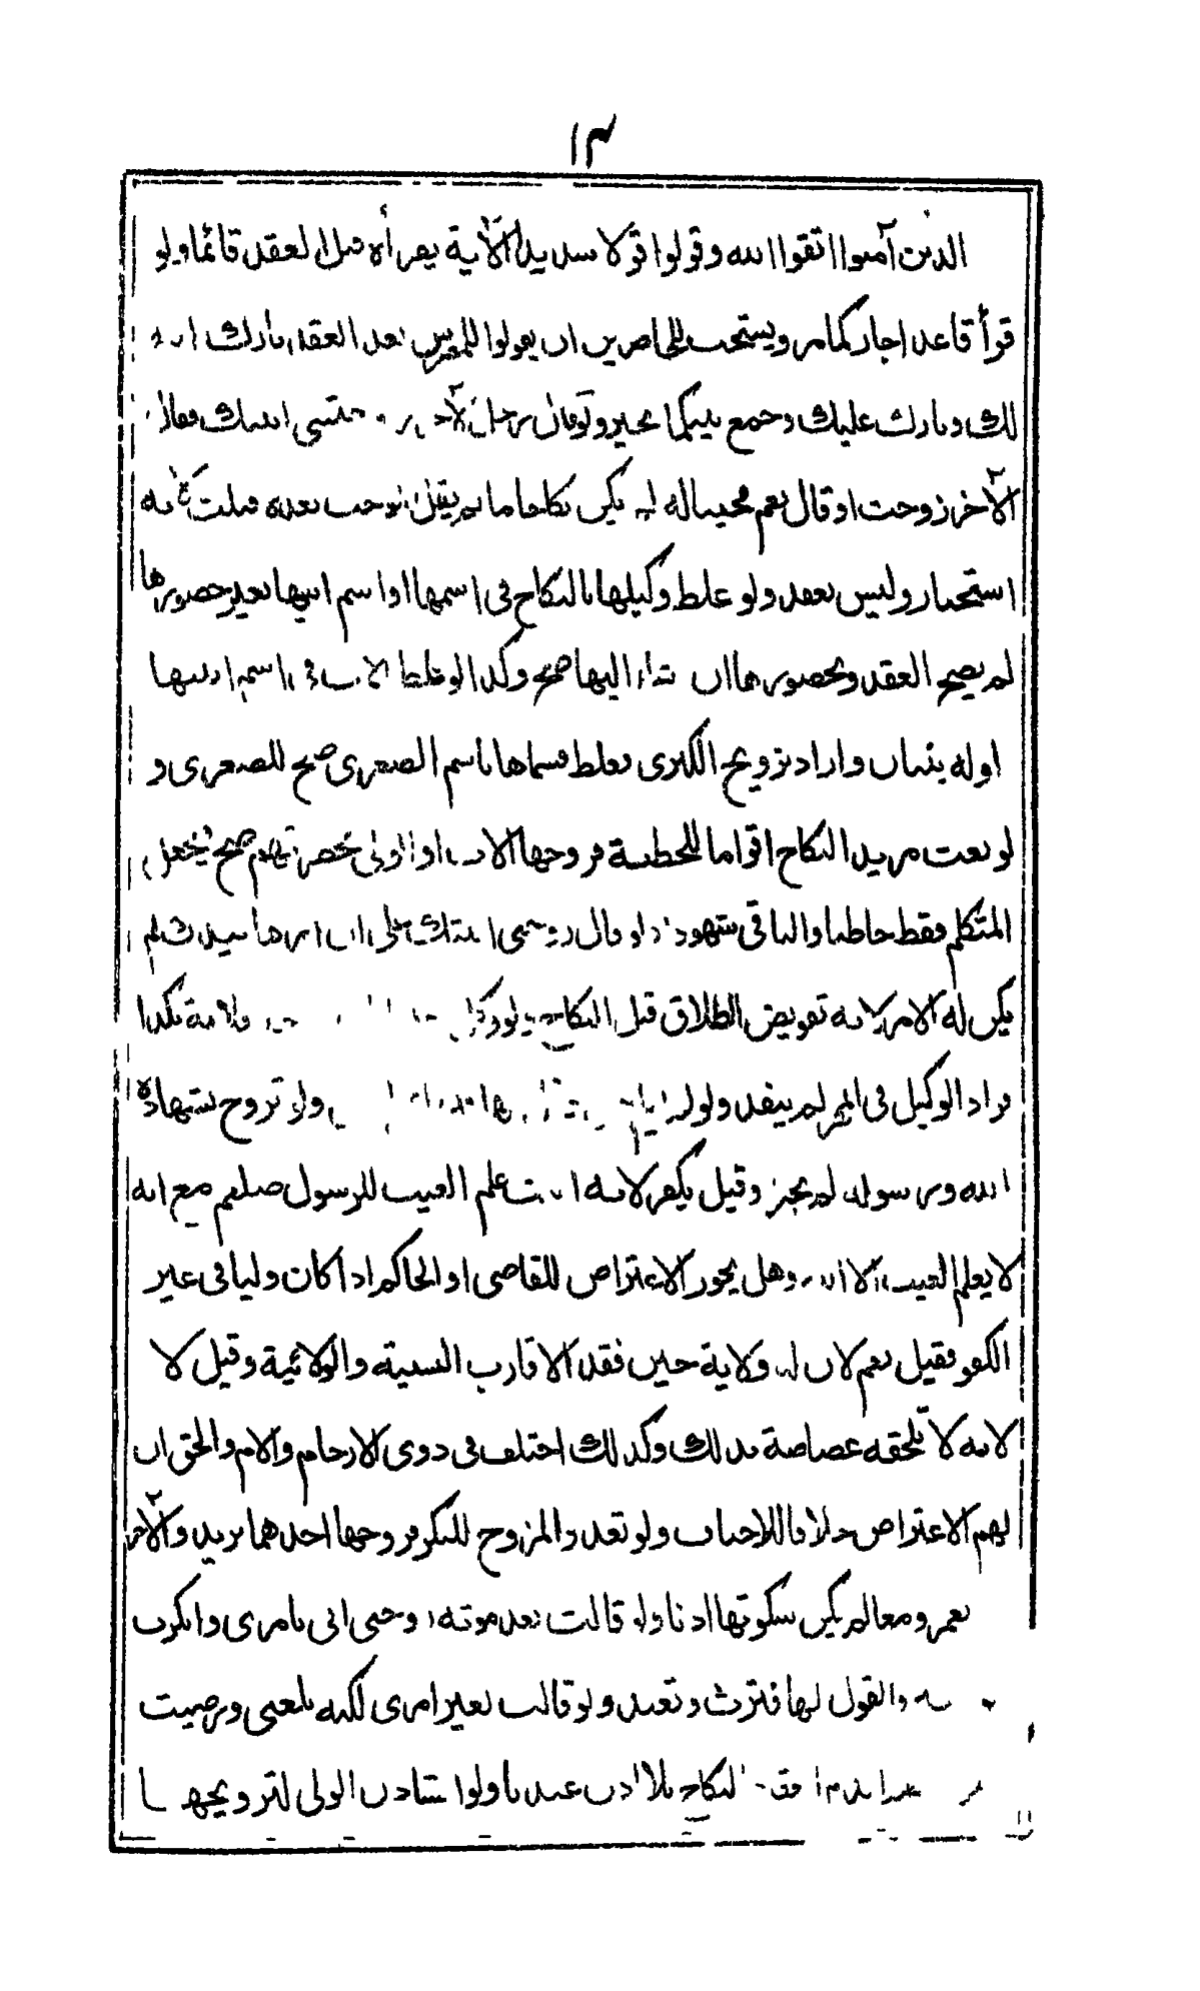 ١٣
الذين آمنوا اتقوا الله وقولوا قولا سديدا الآية يقرأه قبل العقد قائما ولو
قرأ قاعدا جاز كما مر ويستحب للحاضرين ان يقولوا للعروس بعد العقد بارك الله
لك وبارك عليك وجمع بينكما بخير ولو قال رجل لآخر ابنتك فقال
الآخر زوجت او قال نعم مجيبا له لم يكن نكاحا ما لم يقل بعده قبلت لانه
استخبار وليس بعقد ولو غلط وكيلها بالنكاح في اسمها او اسم ابيها بغير حضورها
لم يصح العقد وبحضورها ان اليها صح وكذا لو غلط الاب في اسم ابنتها
او له بنتان واراد تزويج الكبرى فغلط فسماها باسم الصغرى صح للصغرى و
لو بعث مريد النكاح اقواما للخطبة فزوجها الاب او الولي بحضرتهم صح فيجعل
المتكلم فقط خاطبا والباقي شهودا ولو قال زوجني ابنتك على ان امرها بيدك لم
يكن له الامر لانه تفويض الطلاق قبل النكاح ولو بكذا
فزاد الوكيل في المهر لم ينفذ ولو ولو تزوج بشهادة
الله ورسوله لم يجز وقيل يكفر لانه اثبت علم الغيب للرسول صلعم مع انه
لا يعلم الغيب الا الله وهل يجوز الاعتراض للقاضي او الحاكم اذا كان وليا في غير
الكفو فقيل نعم لان له ولاية حين فقد الاقارب النسبية والولائية وقيل لا
لانه لا تلحقه غضاضة بذلك وكذلك اختلف في ذوي الارحام والام والحق ان
لهم الاعتراض خلافا للاحناف ولو تعدد المزوج للبكر فزوجها احدهما بزيد والآخر
بعمرو معا لم يكن سكوتها اذنا ولو قالت بعد موته زوجني ابي بامري وانكرت
فالقول لها فترث وتعتد ولو قالت بغير امري لكنه بلغني ورضيت
النكاح بلا اذن عندنا ولو استأذن الولي لتزويجها